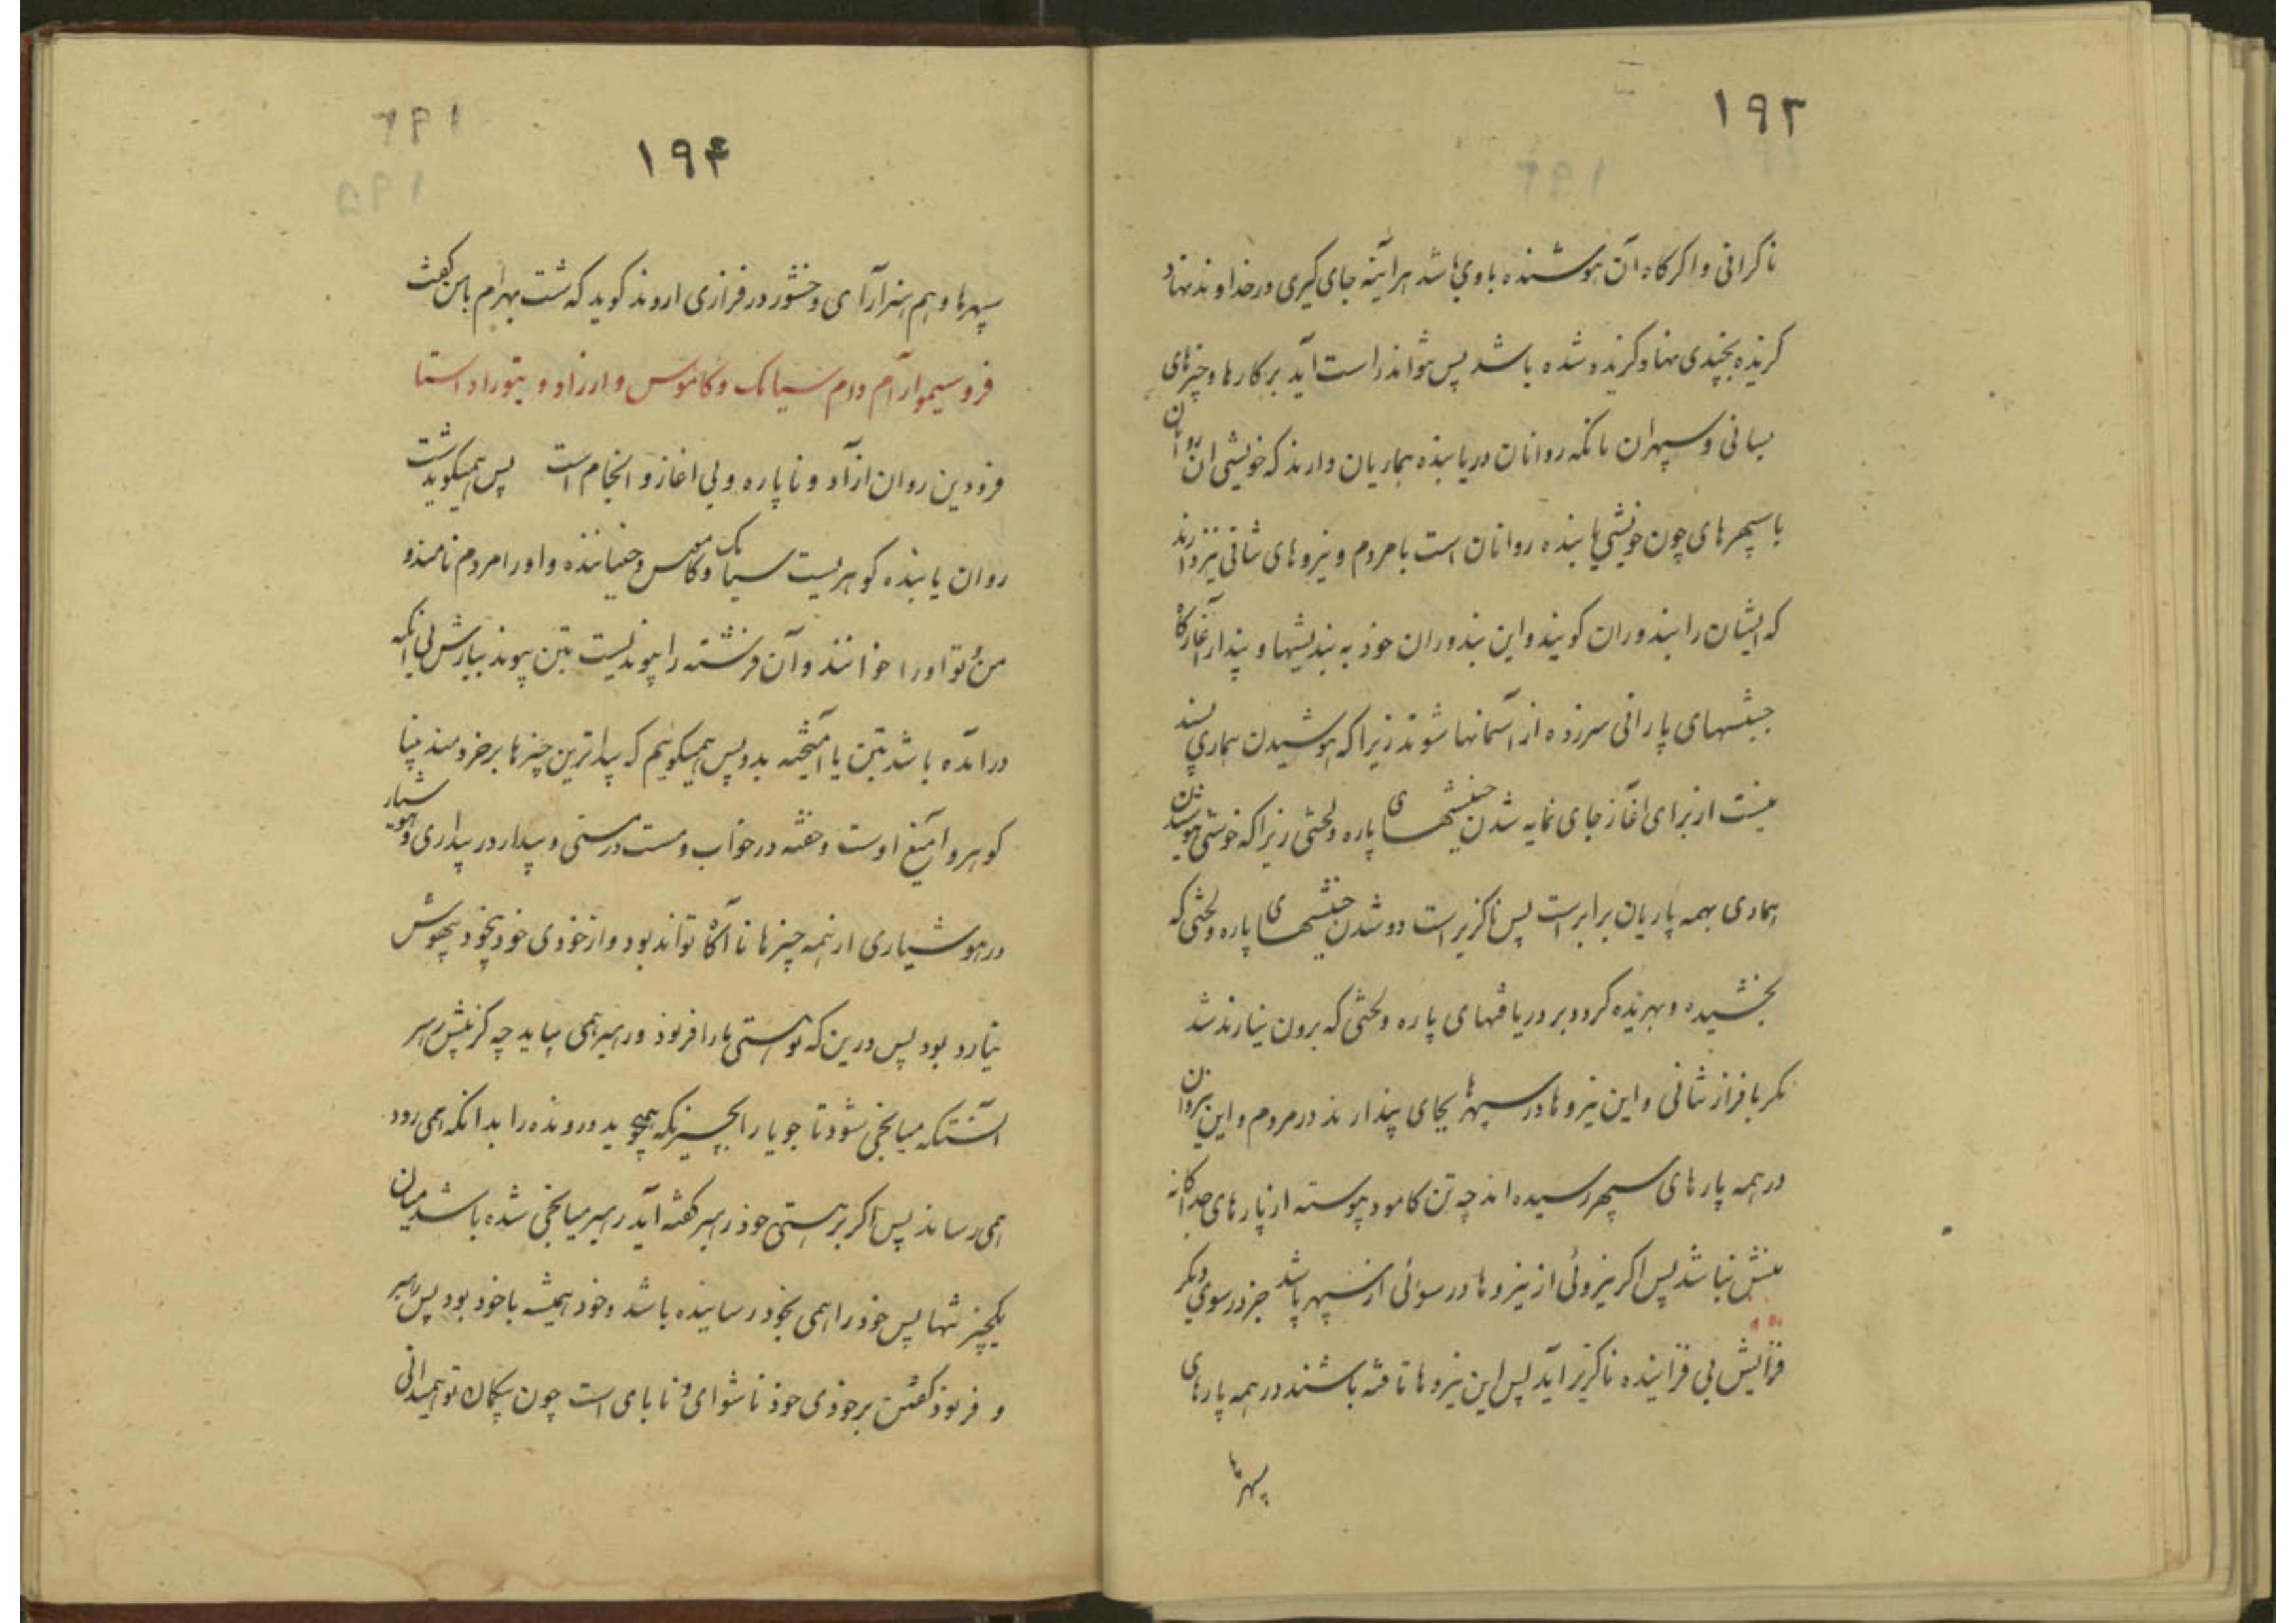 ١٩٣
ناگرانی و اگر گاه آن هوشنده باوی باشد هرآینه جای گیری در خداوند نهاد
گزیده بچندی نهاد گزیده شده باشد پس نتواند راست آید بر کارها و چیزهای
بسانی و سپهران بانکه روانان دریابنده هماریان دارند که خویشی ان روانان
با سپهرهای چون خویشی یابنده روانان است با مردم و نیروهای شانی نیز دارند
که ایشان را بندوران کویند و این بندوران خود به بندیشها و پندار آغازگاه
جنبشهای پارانی سرزده از آسمانها شوند زیرا که هوشیدن هماری بسند
نیست از برای اغاز جای نمایه شدن جنبشهای پاره و لختی زیرا که خوشی هوشیدن
هماری بهمه پاریان برابرست پس ناگزیر است دو شدن جنبشهای پاره و لختی که
بخشیده و بهریده کردد بر دریافتهای پاره و لختی که برون نیارند شد
مکر با فراز شانی و این نیروها در سپهرها بجای پندارند در مردم و این نیروان
در همه پارهای سپهر رسیده اند چه تن کامود پیوسته از پارهای جداگانه
منش نباشد پس اکر نیروئی از نیروها در سوئی از سپهر باشد جز در سوی دیکر
فزایش بی فزاینده ناگزیر آید پس این نیروها تافته باشند در همه پارهای
سپهرها
١٩۴
سپهرها و هم هنرآرای وخشور در فرازی اروند کوید که شت بهرام بامن گفت
فروسیموار آم دام سیامک و کاموس و ارزاد و یتوراد استا
فرودین روان ازآد و ناپاره و بی اغاز و انجام است پس همیکوید شت
روان یابنده کوهریست سیامک و کاموس و جنباننده و او را مردم نامند و
من و تو او را خوانند و آن فرشته را پیوندیست بتن پیوند بیارش بی آنکه
درآمده باشد بتن یا آمیخته بدو پس همیکوئیم که پیداترین چیزها بر خردمند بینا
کوهر و آمیغ اوست و خفته در خواب و مست در مستی و بیدار در بیداری و هوشیار
در هوشیاری از همه چیزها ناآگاه تواند بود و از خودی خود بیخود و بیهوش
نیارد بود پس درین که هستی ما را فرنود و رهبر همی بباید چه کزینش رهبر
آنستکه میانجی شود تا جویا را بچیزیکه همیجوید و رونده را بدانکه همی رود
همی رساند پس اگر بر هستی خود رهبر گفته آید رهبر میانجی شده باشد میان
یکچیز تنها پس خود را همی بخود رساینده باشد و خود همیشه با خود بود پس رهبر
و فرنود گفتن بر خودی خود ناشوای و نابای است چون بیکمان تو همیدانی